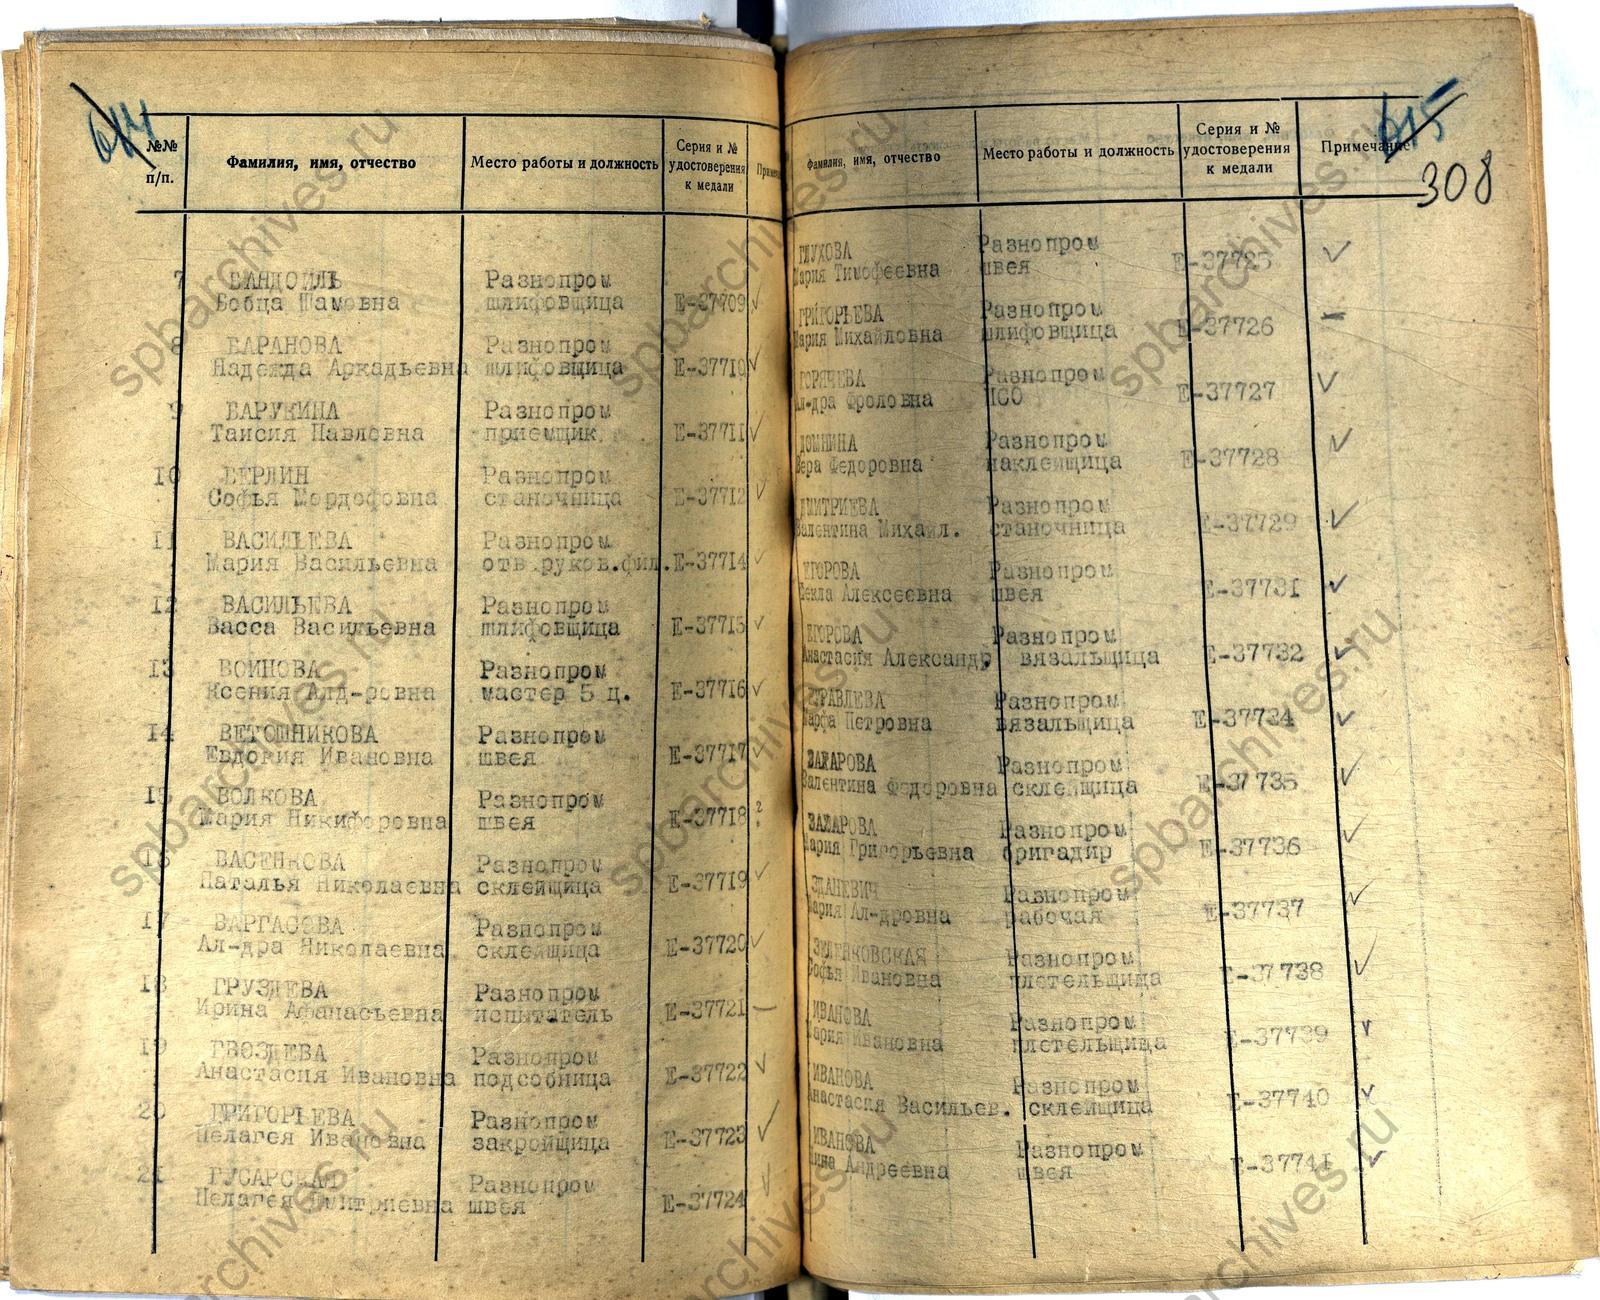 614
№№ п/п.
Фамилия, имя, отчество
Место работы и должность
Серия и № удостоверения к медали
7 БАНДОИЛЬ Разнопром
Бобца Шамовна шлифовщица Е-37709 ✓
8 БАРАНОВА Разнопром
Надежда Аркадьевна шлифовщица Е-37710 ✓
9 БАРУКИНА Разнопром
Таисия Павловна приемщик Е-37711 ✓
10 БЕРЛИН Разнопром
Софья Мордофовна станочница Е-37712 ✓
11 ВАСИЛЬЕВА Разнопром
Мария Васильевна отв.руков.фил. Е-37714 ✓
12 ВАСИЛЬЕВА Разнопром
Васса Васильевна шлифовщица Е-37715 ✓
13 ВОИНОВА Разнопром
Ксения Алд-ровна мастер 5 ц. Е-37716 ✓
14 ВЕТОШНИКОВА Разнопром
Евдокия Ивановна швея Е-37717 ✓
15 ВОЛКОВА Разнопром
Мария Никифоровна швея Е-37718 ?
16 ВАСЕНКОВА Разнопром
Наталья Николаевна склейщица Е-37719 ✓
17 ВАРГАСОВА Разнопром
Ал-дра Николаевна склейщица Е-37720 ✓
18 ГРУЗДЕВА Разнопром
Ирина Афанасьевна испытатель Е-37721 —
19 ГВОЗДЕВА Разнопром
Анастасия Ивановна подсобница Е-37722 ✓
20 ГРИГОРЬЕВА Разнопром
Пелагея Ивановна закройщица Е-37723 ✓
21 ГУСАРСКАЯ Разнопром
Пелагея Дмитриевна швея Е-37724 ✓
615
308
Фамилия, имя, отчество
Место работы и должность
Серия и № удостоверения к медали
Примечание
ГЛУХОВА Разнопром
Мария Тимофеевна швея Е-37725 ✓
ГРИГОРЬЕВА Разнопром
Мария Михайловна шлифовщица Е-37726 —
ГОРЯЧЕВА Разнопром
Ал-дра Фроловна ПСО Е-37727 ✓
ДОМНИНА Разнопром
Вера Федоровна наклейщица Е-37728 ✓
ДМИТРИЕВА Разнопром
Валентина Михайл. станочница Е-37729 ✓
ЕГОРОВА Разнопром
Фекла Алексеевна швея Е-37731 ✓
ЕГОРОВА Разнопром
Анастасия Александр вязальщица Е-37732 ✓
ЖУРАВЛЕВА Разнопром
Марфа Петровна вязальщица Е-37734 ✓
ЗАХАРОВА Разнопром
Валентина Федоровна склейщица Е-37735 ✓
ЗАХАРОВА Разнопром
Мария Григорьевна бригадир Е-37736 ✓
ЗДАНЕВИЧ Разнопром
Мария Ал-дровна рабочая Е-37737 ✓
ЗЕЛЕНКОВСКАЯ Разнопром
Софья Ивановна плетельщица Е-37738 ✓
ИВАНОВА Разнопром
Мария Ивановна плетельщица Е-37739 ✓
ИВАНОВА Разнопром
Анастасия Васильев. склейщица Е-37740 ✓
ИВАНОВА Разнопром
Андреевна швея Е-37741 ✓
spbarchives.ru